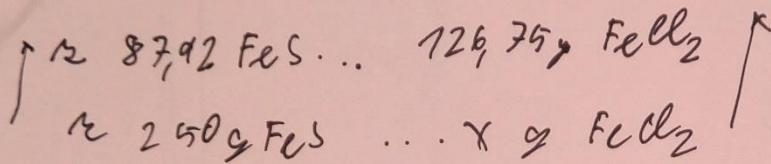 ↑ z 87,92 FeS ... 126,75g FeCl₂ ↑
z 250g FeS ... x g FeCl₂